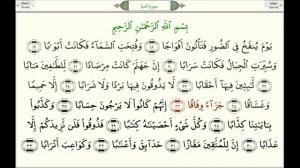 سورة النبأ
بِسْمِ اللَّهِ الرَّحْمَٰنِ الرَّحِيمِ
يَوْمَ يُنفَخُ فِي الصُّورِ فَتَأْتُونَ أَفْوَاجًا ﴿١٨﴾ وَفُتِحَتِ السَّمَاءُ فَكَانَتْ أَبْوَابًا ﴿١٩﴾
وَسُيِّرَتِ الْجِبَالُ فَكَانَتْ سَرَابًا ﴿٢٠﴾ إِنَّ جَهَنَّمَ كَانَتْ مِرْصَادًا ﴿٢١﴾ لِّلطَّاغِينَ مَآبًا
﴿٢٢﴾ لَّابِثِينَ فِيهَا أَحْقَابًا ﴿٢٣﴾ لَّا يَذُوقُونَ فِيهَا بَرْدًا وَلَا شَرَابًا ﴿٢٤﴾ إِلَّا حَمِيمًا
وَغَسَّاقًا ﴿٢٥﴾ جَزَاءً وِفَاقًا ﴿٢٦﴾ إِنَّهُمْ كَانُوا لَا يَرْجُونَ حِسَابًا ﴿٢٧﴾ وَكَذَّبُوا
بِآيَاتِنَا كِذَّابًا ﴿٢٨﴾ وَكُلَّ شَيْءٍ أَحْصَيْنَاهُ كِتَابًا ﴿٢٩﴾ فَذُوقُوا فَلَن نَّزِيدَكُمْ إِلَّا
عَذَابًا ﴿٣٠﴾ إِنَّ لِلْمُتَّقِينَ مَفَازًا ﴿٣١﴾ حَدَائِقَ وَأَعْنَابًا ﴿٣٢﴾ وَكَوَاعِبَ أَتْرَابًا ﴿٣٣﴾